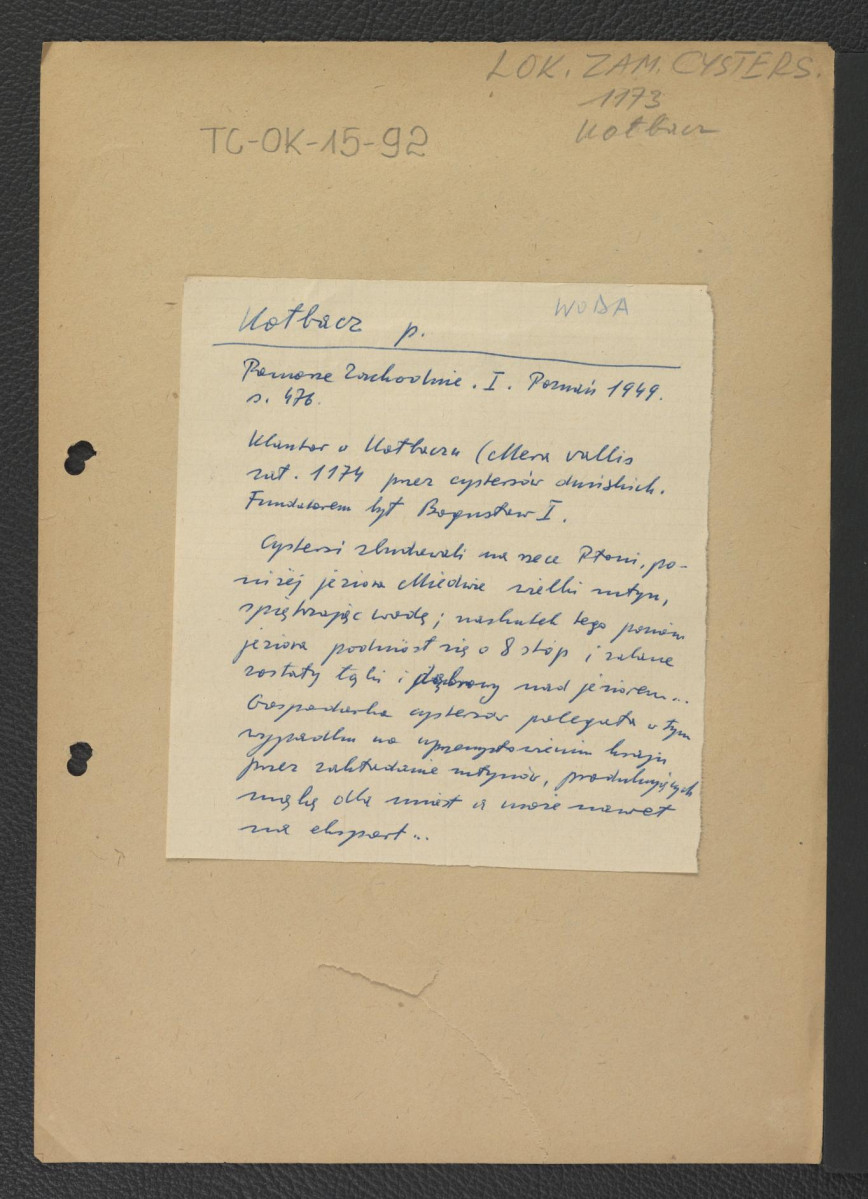 LOK. ZAM. CYSTERS.
1173
Kołbacz
TC-OK-15-92
WODA
Kołbacz p.
Pomorze Zachodnie. I. Poznań 1949.
s. 476.
Klasztor w Kołbaczu (Mera vallis
zał. 1174 przez cystersów duńskich.
Fundatorem był Bogusław I.
Cystersi zbudowali na rzece Płoni, po-
niżej jeziora Miedwie wielki młyn,
spiętrzając wodę; naskutek tego poziom
jeziora podniósł się o 8 stóp i zalane
zostały łąki i dąbrowy nad jeziorem...
Gospodarka cystersów polegała w tym
wypadku na uprzemysłowieniu kraju
przez zakładanie młynów, produkujących
mąkę dla miast a może nawet
na eksport...